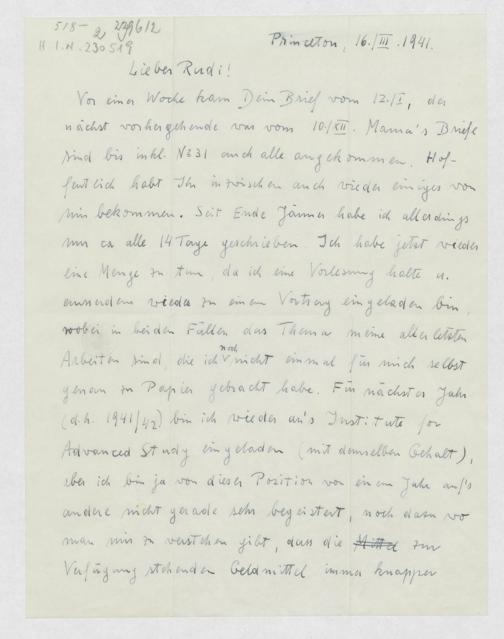 518-
2 229612
H I.N. 230519
Princeton, 16./III.1941.
Lieber Rudi!
Vor einer Woche kam Dein Brief vom 12./I, der
nächst vorhergehende war vom 10./XII. Mama's Briefe
sind bis inkl. N: 31 auch alle angekommen. Hof-
fentlich habt Ihr inzwischen auch wieder einiges von
mir bekommen. Seit Ende Jänner habe ich allerdings
nur ca alle 14 Tage geschrieben. Ich habe jetzt wieder
eine Menge zu tun, da ich eine Vorlesung halte u.
ausserdem wieder zu einem Vortrag eingeladen bin,
wobei in beiden Fällen das Thema meine allerletzten
Arbeiten sind, die ich noch nicht einmal für mich selbst
genau zu Papier gebracht habe. Für nächstes Jahr
(d.h. 1941/42) bin ich wieder an's Institute for
Advanced Study eingeladen (mit demselben Gehalt),
aber ich bin ja von dieser Position von einem Jahr auf's
andere nicht gerade sehr begeistert, noch dazu wo
man mir zu verstehen gibt, dass die Mittel zur
Verfügung stehenden Geldmittel immer knapper